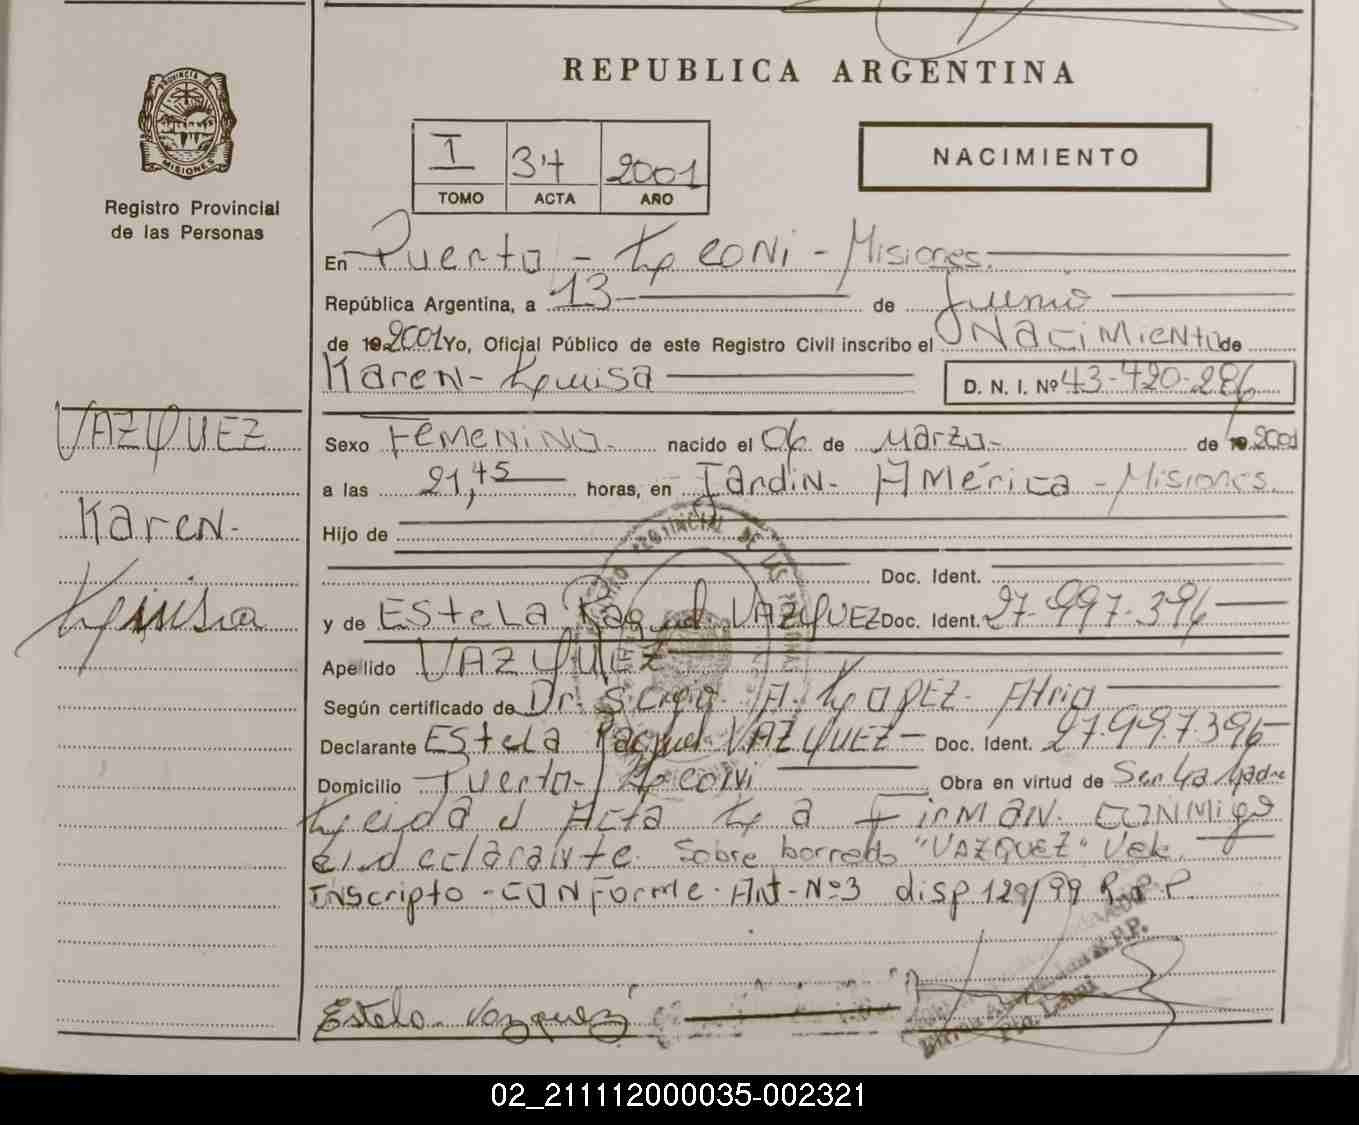 REPUBLICA ARGENTINA
PROVINCIA
MISIONES
Registro Provincial
de las Personas
I 34 2001
TOMO ACTA AÑO
NACIMIENTO
En Puerto - Leoni - Misiones.
República Argentina, a 13 de Junio
de 192001 Yo, Oficial Público de este Registro Civil inscribo el Nacimiento de
Karen - Luisa D. N. I. Nº 43-420-286
VAZQUEZ
Karen -
Luisa
Sexo Femenino. nacido el 06 de Marzo - de 2001
a las 21,45 horas, en Jardin - América - Misiones.
Hijo de
Doc. Ident.
y de EStela Raquel VAZQUEZ Doc. Ident. 27-997-396
Apellido VAZQUEZ
Según certificado de Dr. Sergio A. LOPEZ -
Declarante EStela Raquel VAZQUEZ - Doc. Ident. 27.997.396
Domicilio Puerto - Leoni Obra en virtud de Ser La Madre
Leida el Acta La Firman conmigo
el declarante. Sobre borrado "VAZQUEZ" Vale.
Inscripto - CONForme - Art - Nº 3 disp 129/99 R.P.P.
Estela Vazquez
02_211112000035-002321